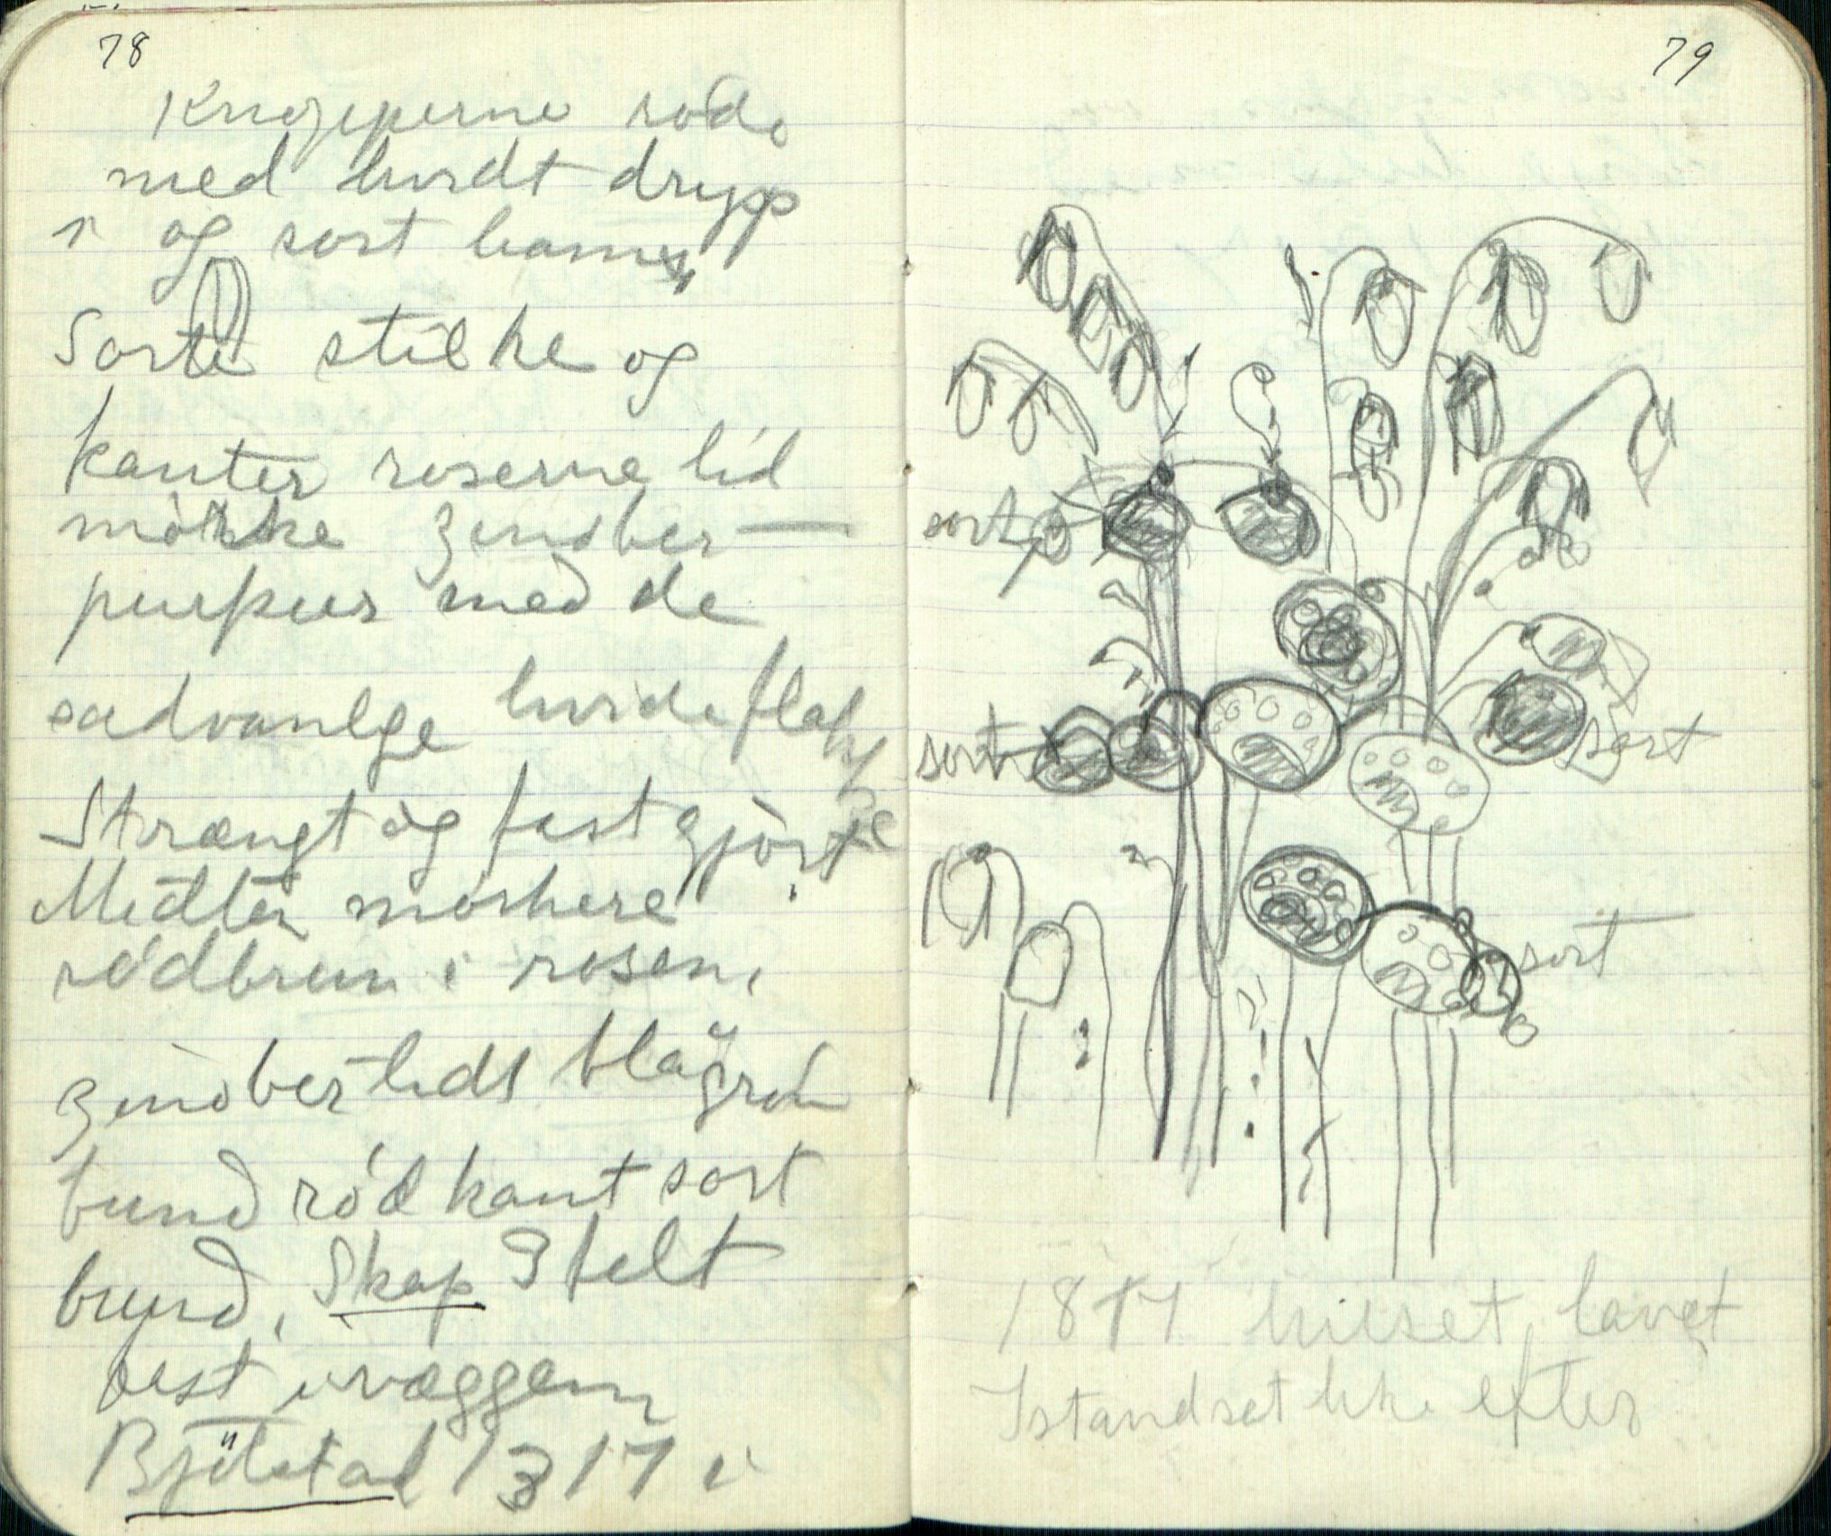 78
Knopperne røde
med hvidt drypp
og sort
Sorte stilke og
kanter roserne lid
mørke zinober —
purpur med de
sædvanlge hvide flak
Strængt og fast gjort
Midten mørkere
rødbrun i rosen.
zinober lidt blågrøn
bund rød kant sort
bund. Skap 3 felt
fast i væggen
Bjölstad 1817 i
79
sort
sort
sort
sort
1817 huset lavet
Istandsat like efter